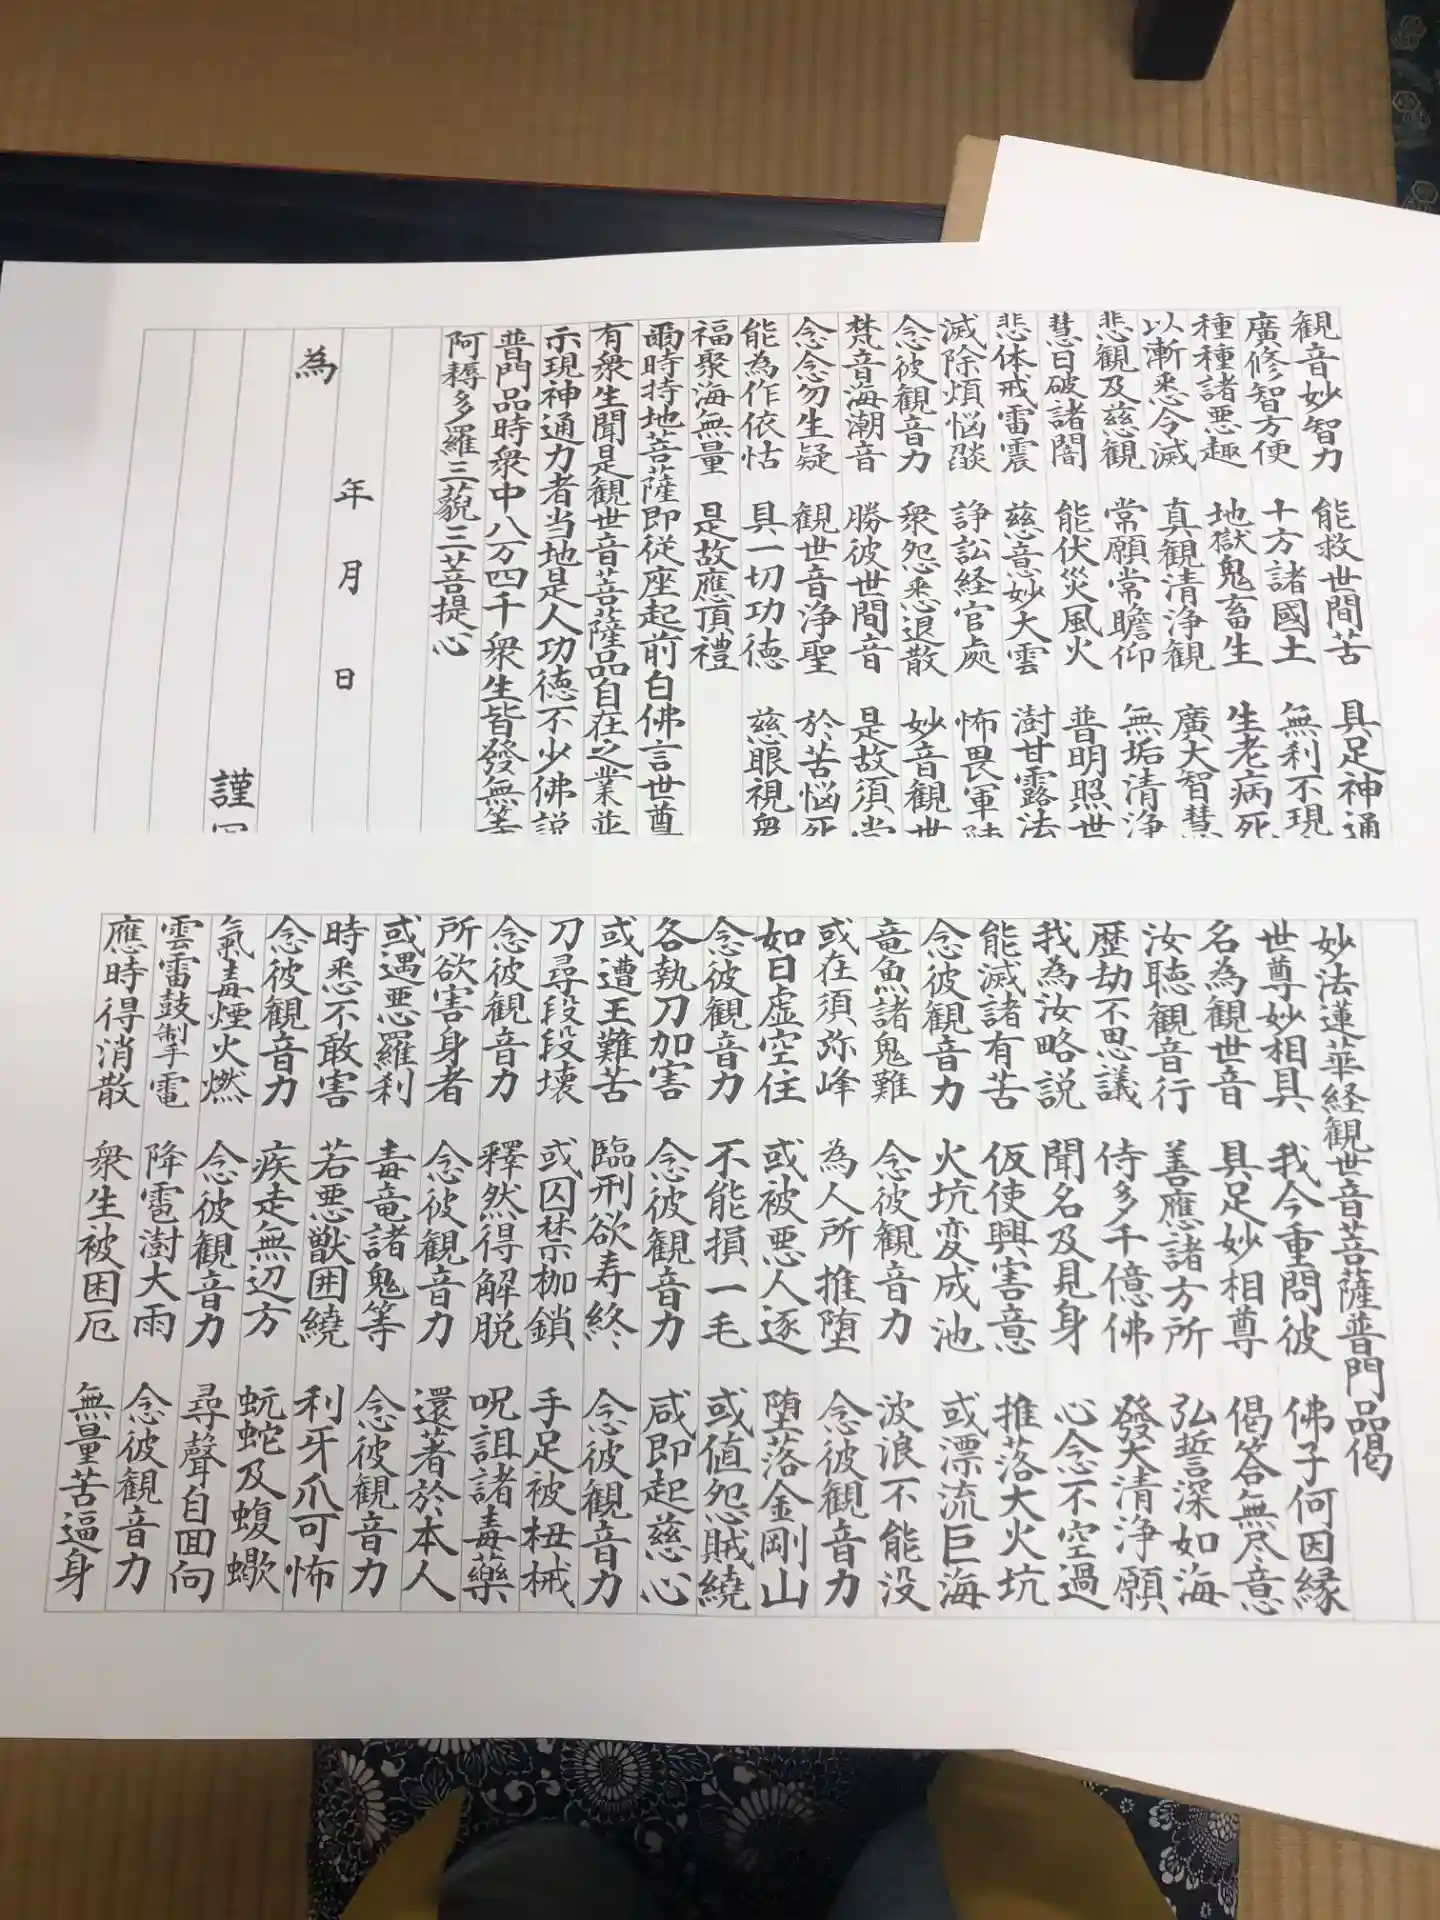 観音妙智力 能救世間苦 具足神通
廣修智方便 十方諸國土 無刹不現
種種諸悪趣 地獄鬼畜生 生老病死
以漸悉令滅 真観清浄観 廣大智慧
悲観及慈観 常願常瞻仰 無垢清浄
慧日破諸闇 能伏災風火 普明照世
悲体戒雷震 慈意妙大雲 澍甘露法
滅除煩悩燄 諍訟経官處 怖畏軍陣
念彼観音力 衆怨悉退散 妙音観世
梵音海潮音 勝彼世間音 是故須常
念念勿生疑 観世音浄聖 於苦悩死
能為作依怙 具一切功徳 慈眼視衆
福聚海無量 是故應頂禮
爾時持地菩薩即従座起前白佛言世尊
有衆生聞是観世音菩薩品自在之業
示現神通力者当知是人功徳不少佛説
普門品時衆中八万四千衆生皆發無等
阿耨多羅三藐三菩提心
年 月 日
為
謹
妙法蓮華経観世音菩薩普門品偈
世尊妙相具 我今重問彼 佛子何因縁
名為観世音 具足妙相尊 偈答無尽意
汝聴観音行 善應諸方所 弘誓深如海
歴劫不思議 侍多千億佛 發大清浄願
我為汝略説 聞名及見身 心念不空過
能滅諸有苦 仮使興害意 推落大火坑
念彼観音力 火坑変成池 或漂流巨海
竜魚諸鬼難 念彼観音力 波浪不能没
或在須弥峰 為人所推堕 念彼観音力
如日虚空住 或被悪人逐 堕落金剛山
念彼観音力 不能損一毛 或値怨賊繞
各執刀加害 念彼観音力 咸即起慈心
或遭王難苦 臨刑欲寿終 念彼観音力
刀尋段段壊 或囚禁枷鎖 手足被杻械
念彼観音力 釋然得解脱 呪詛諸毒藥
所欲害身者 念彼観音力 還著於本人
或遇悪羅刹 毒竜諸鬼等 念彼観音力
時悉不敢害 若悪獣囲繞 利牙爪可怖
念彼観音力 疾走無辺方 蚖蛇及蝮蠍
氣毒煙火燃 念彼観音力 尋聲自回向
雲雷鼓掣電 降雹澍大雨 念彼観音力
應時得消散 衆生被困厄 無量苦逼身